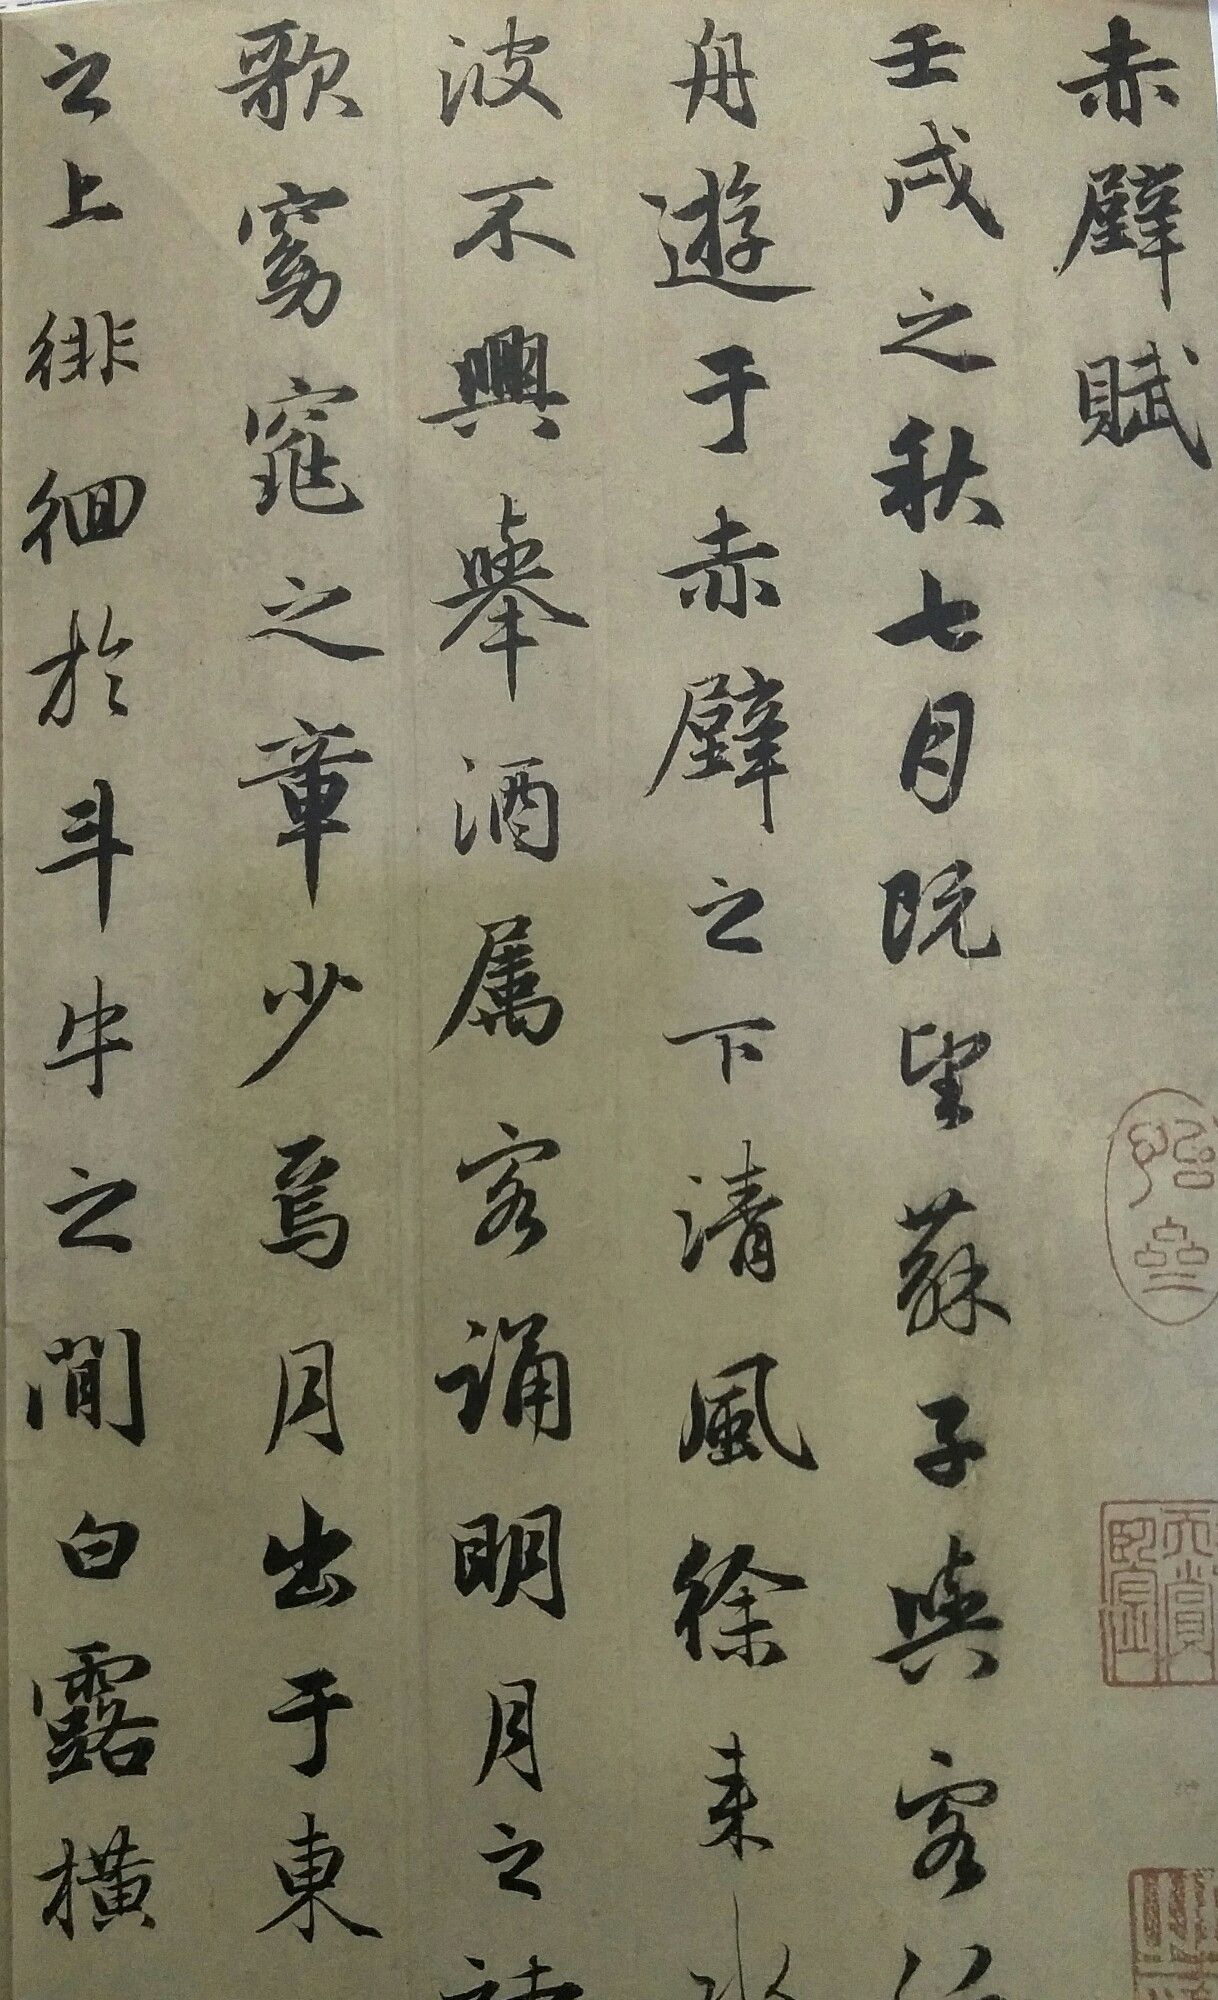 赤壁賦
壬戌之秋七月既望蘇子與客
舟遊于赤壁之下清風徐来水
波不興舉酒属客誦明月之詩
歌窈窕之章少焉月出于東
之上徘徊於斗牛之間白露横